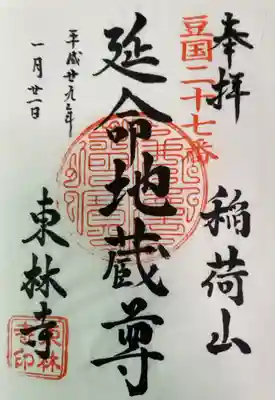 奉拝
稲荷山
豆国二十七番
延命地蔵尊
平成廿九年
一月廿一日
東林寺